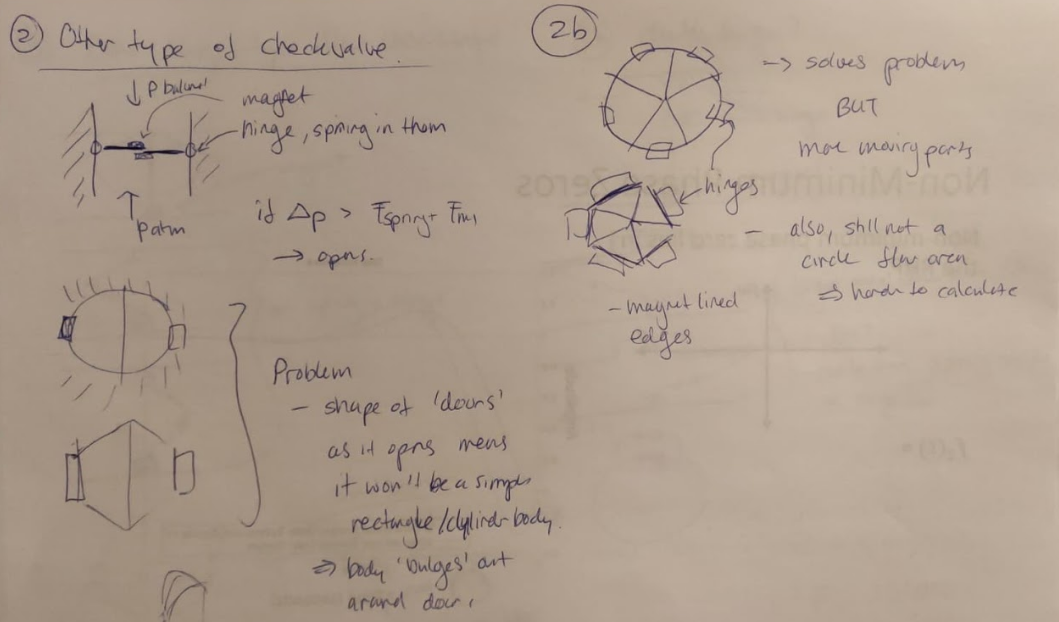 2 Other type of checkvalve.
↓ P
magnet
hinge, spring in them
↑
Patm
if Δp > Fspring + Fm
→ opens.
Problem
- shape of 'doors'
as it opens means
it won't be a simple
rectangle/cylinder body.
⇒ body 'bulges' out
around door.
2b
→ solves problem
BUT
more moving parts
hinges
- also, still not a
circle flow area
⇒ harder to calculate
- magnet lined
edges
Non-Minimum Phase Zeros